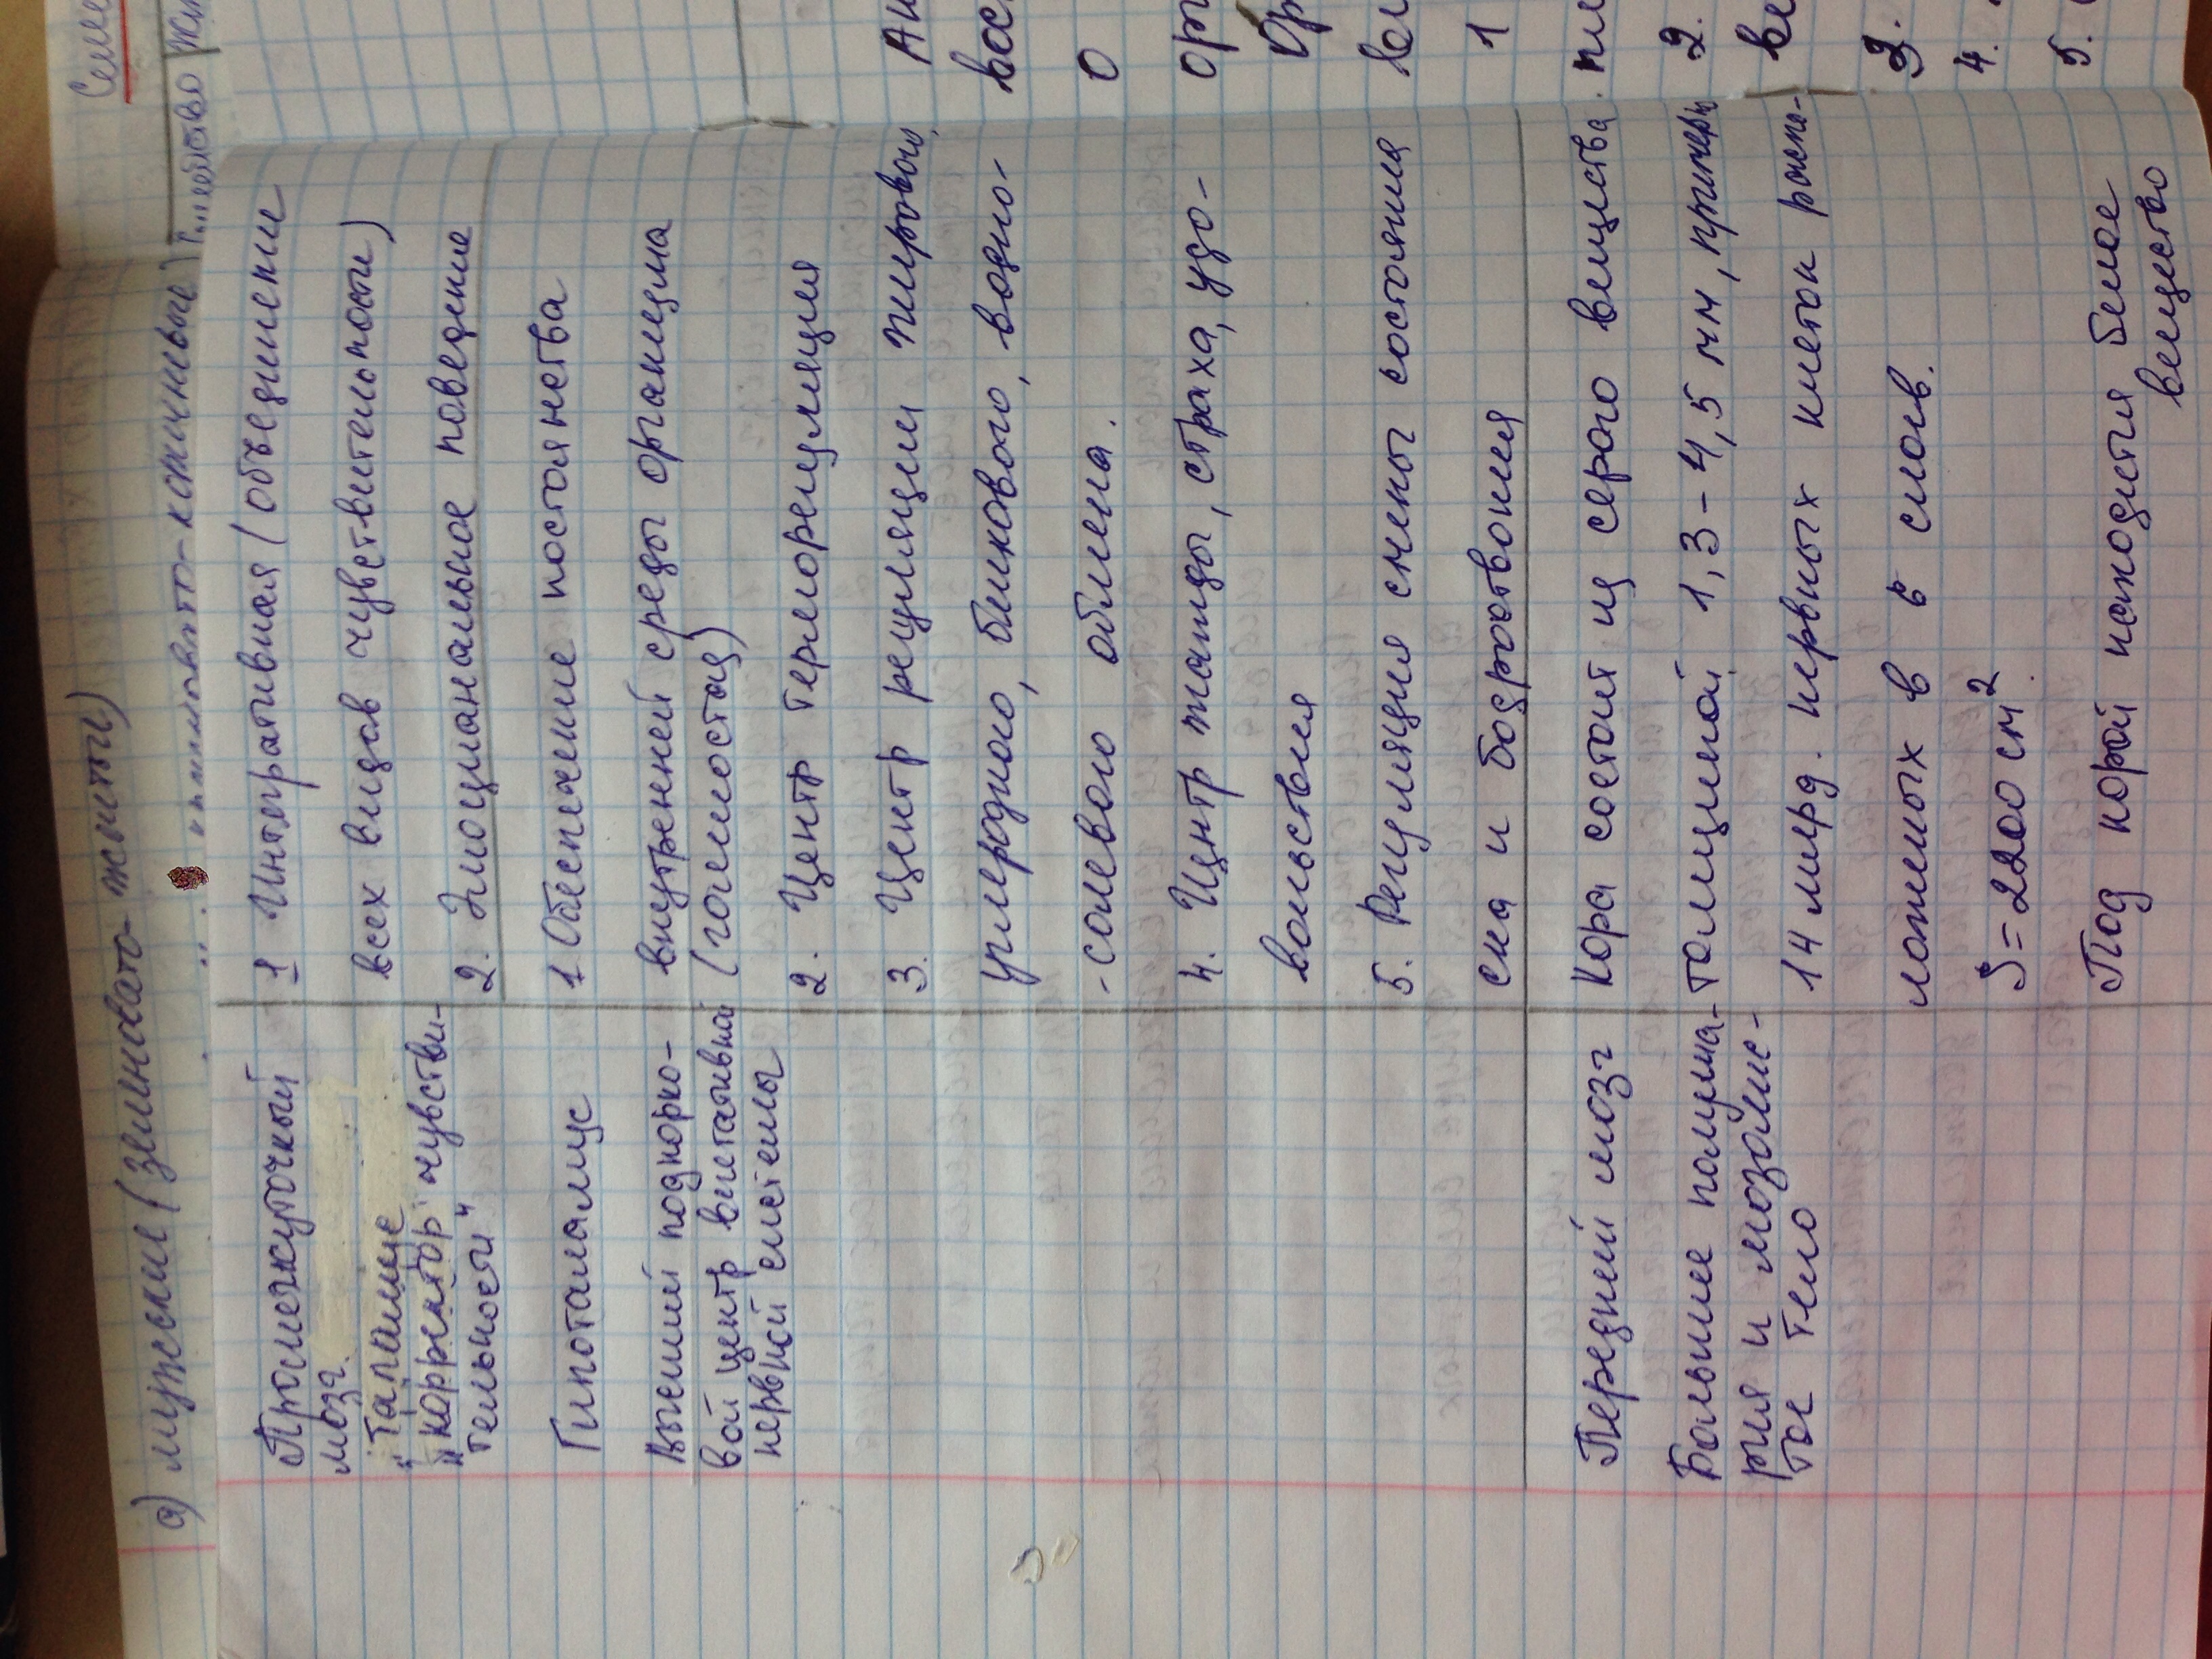 а) мужские (земновато-желтые)
Семе
Промежуточный
мозг.
"Таламус
"корректор чувстви-
тельности"
1 Интегративная (объединение
всех видов чувствительности)
2. Эмоциональное поведение
Гипоталамус
Высший подкорко-
вой центр вегетативной
нервной системы
1 Обеспечение постоянства
внутренней среды организма
(гомеостаз)
2. Центр терморегуляция
3. Центр регуляции жирового,
углеродного, белкового, водно-
-солевого обмена.
4. Центр жажды, страха, удо-
вольствия
5. Регуляция смены состояния
сна и бодрствования
Передний мозг
Большие полуша-
рия и мозолис-
тое тело
Кора состоит из серого вещества
толщиной 1,3-4,5 мм, примерно
14 млрд. нервных клеток распо-
ложеных в 6 слоев.
S=2200 см²
Под корой находится белое
вещество
вос
о
ор
Ор
1
2.
3.
4.
5.